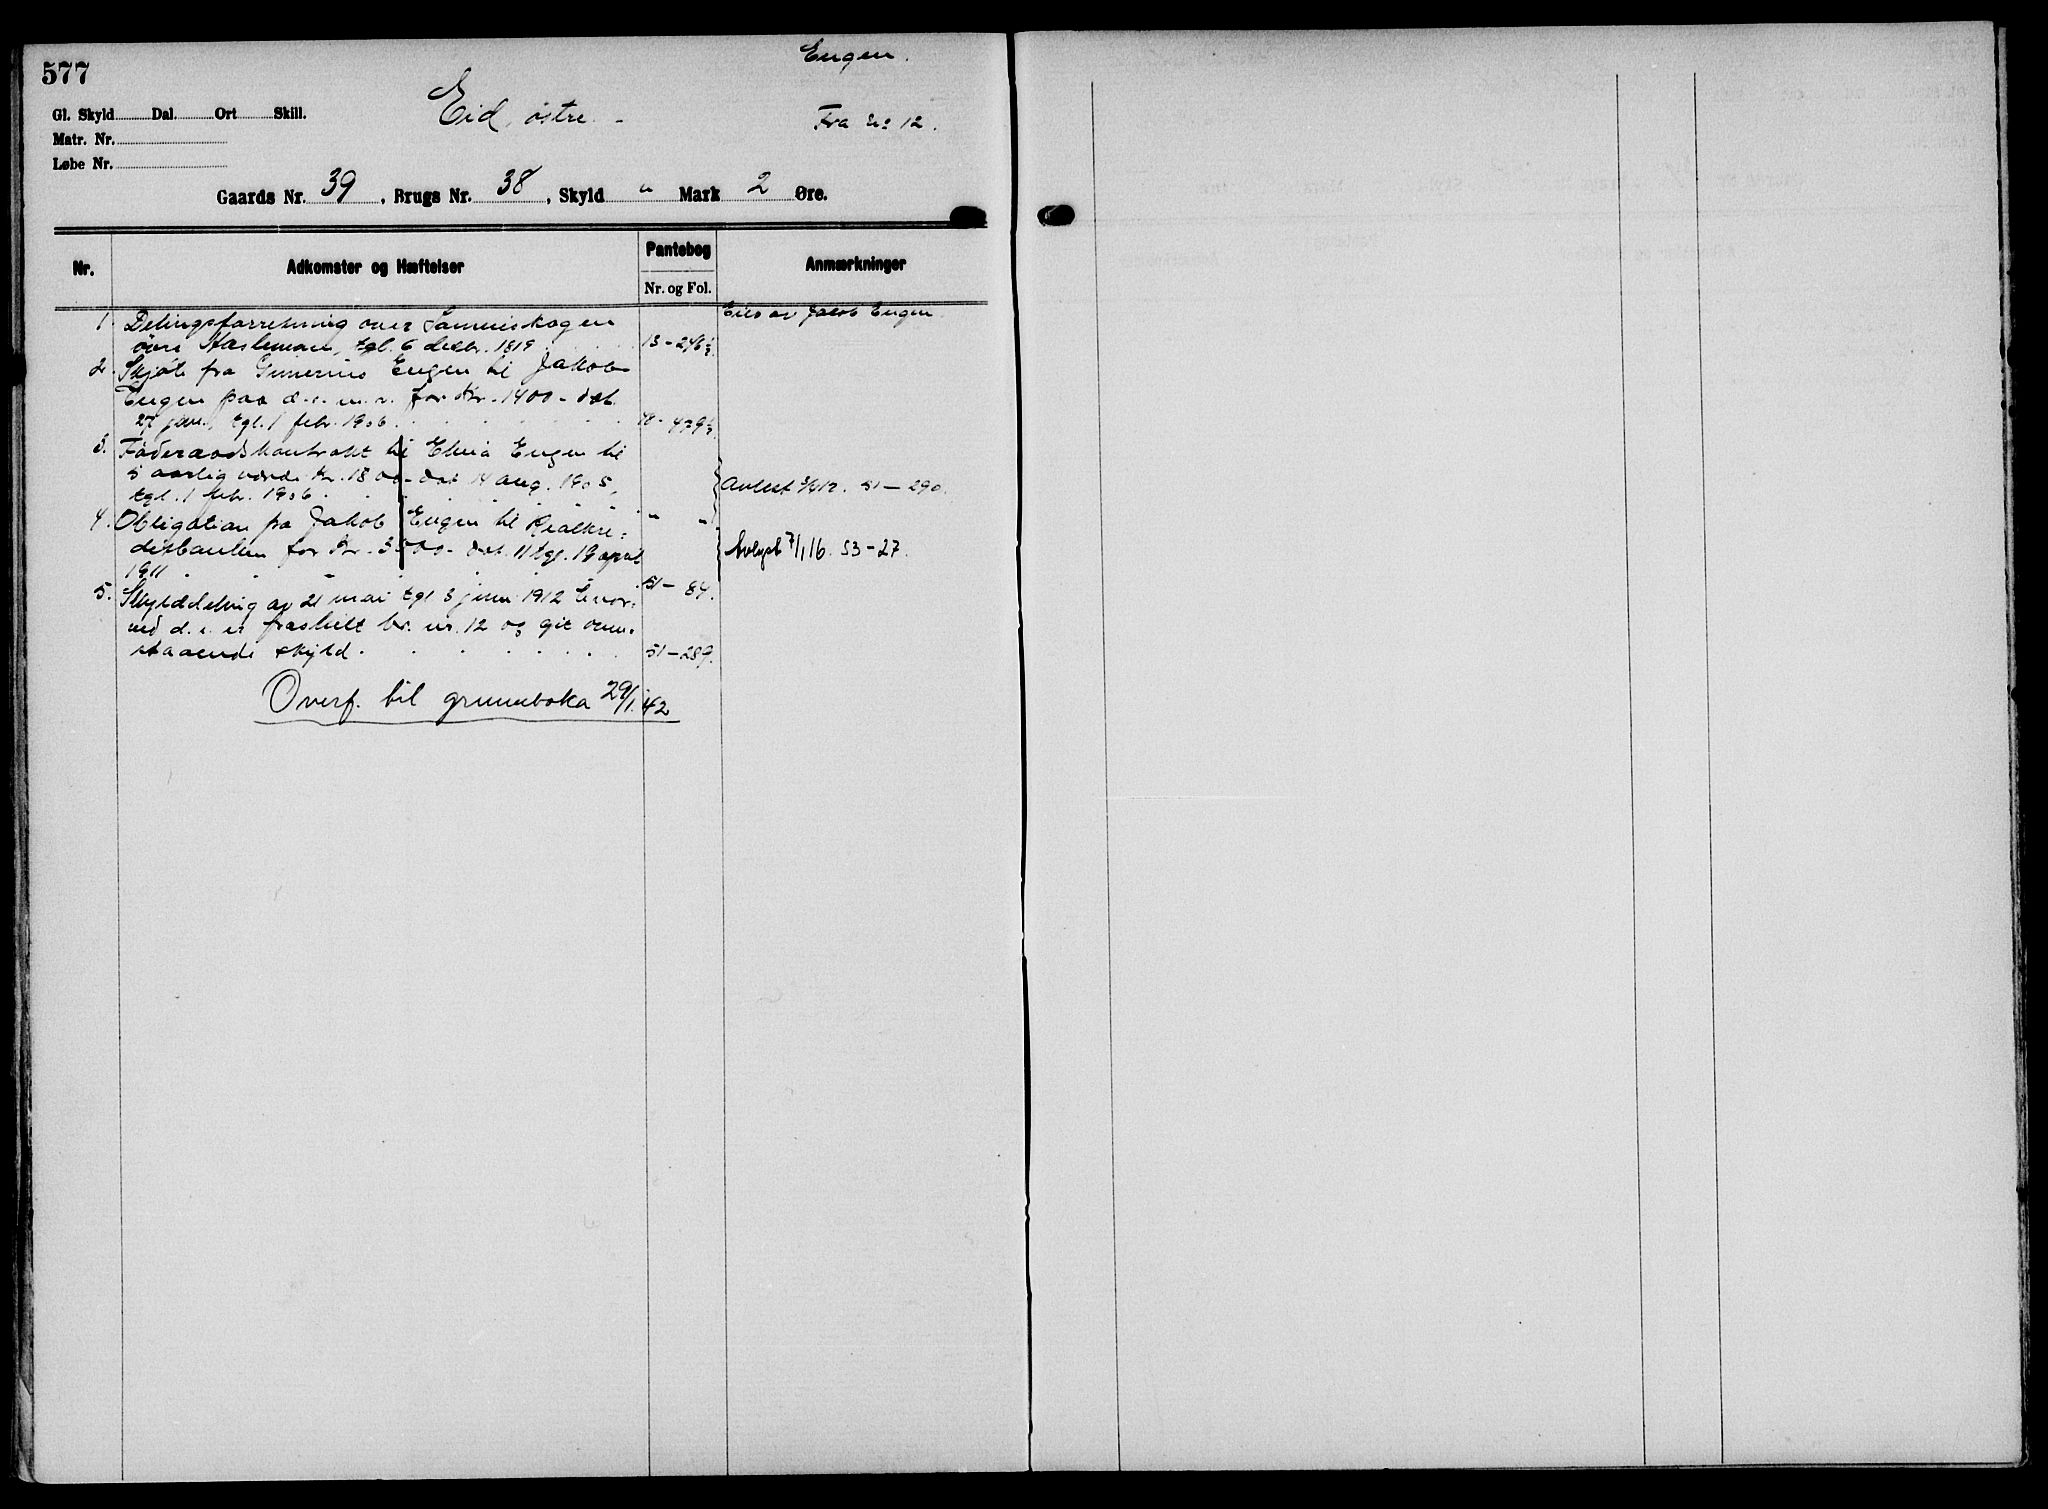 577
Engen.
Gl. Skyld Dal. Ort Skill.
Eid, østre.
Fra no 12.
Matr. Nr.
Løbe Nr.
Gaards Nr. 39, Brugs Nr. 38, Skyld " Mark 2 Øre.
Nr.
Adkomster og Hæftelser
Pantebog
Nr. og Fol.
Anmærkninger
Eies av Jacob Engen.
1. Delingsforretning over
øvre Hasleman, tgl. 6 decbr. 1819. 13-246½.
2. Skjøte fra Gunerius Engen til Jakob
Engen paa d. e. m. v. for Kr. 1400- dat.
27 jan., tgl. 1 febr. 1906. 40-479½.
3. Føderaadskontrakt til Engen til
5 aarlig værdi Kr. 1800- dat 14 aug. 1905,
tgl. 1 febr. 1906. " "
Avlest 3/612. 51-290.
4. Obligation fra Jakob Engen til Realkre-
ditbanken for Kr. 3500- dat. 11 tgl. 19 april
1911. 51-84.
Avlyst 7/1 16. 53-27.
5. Skylddeling av 21 mai tgl 3 juni 1912 hvor-
ved d. e. er fraskilt br. nr. 12 og git oven-
staaende skyld. 51-289.
Overf. til grunnboka 29/1. 42